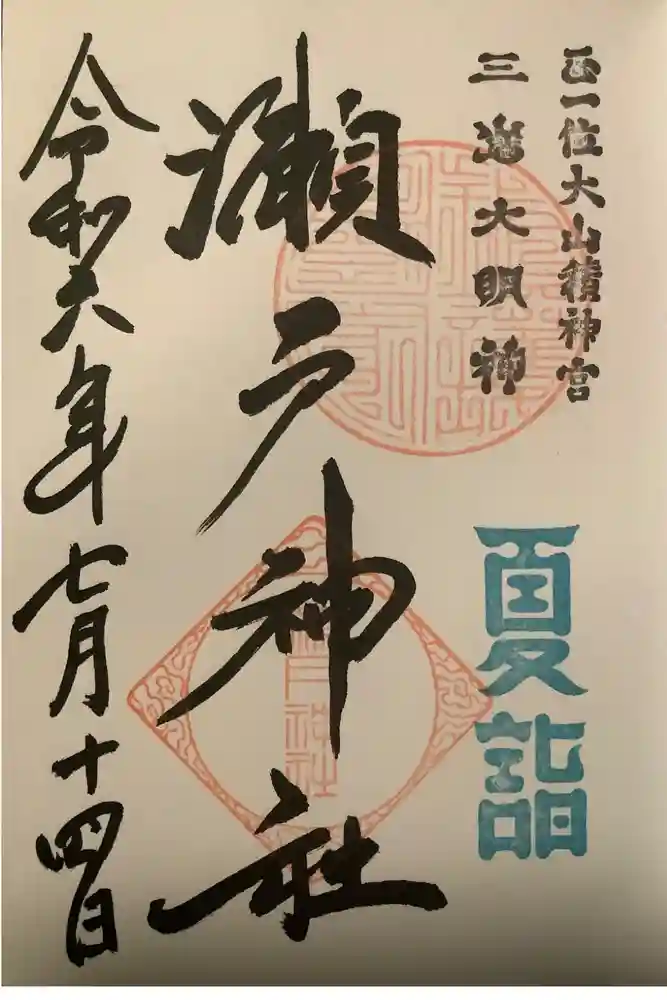 正一位大山積神宮
三島大明神
夏詣
瀬戸神社
令和六年七月十四日